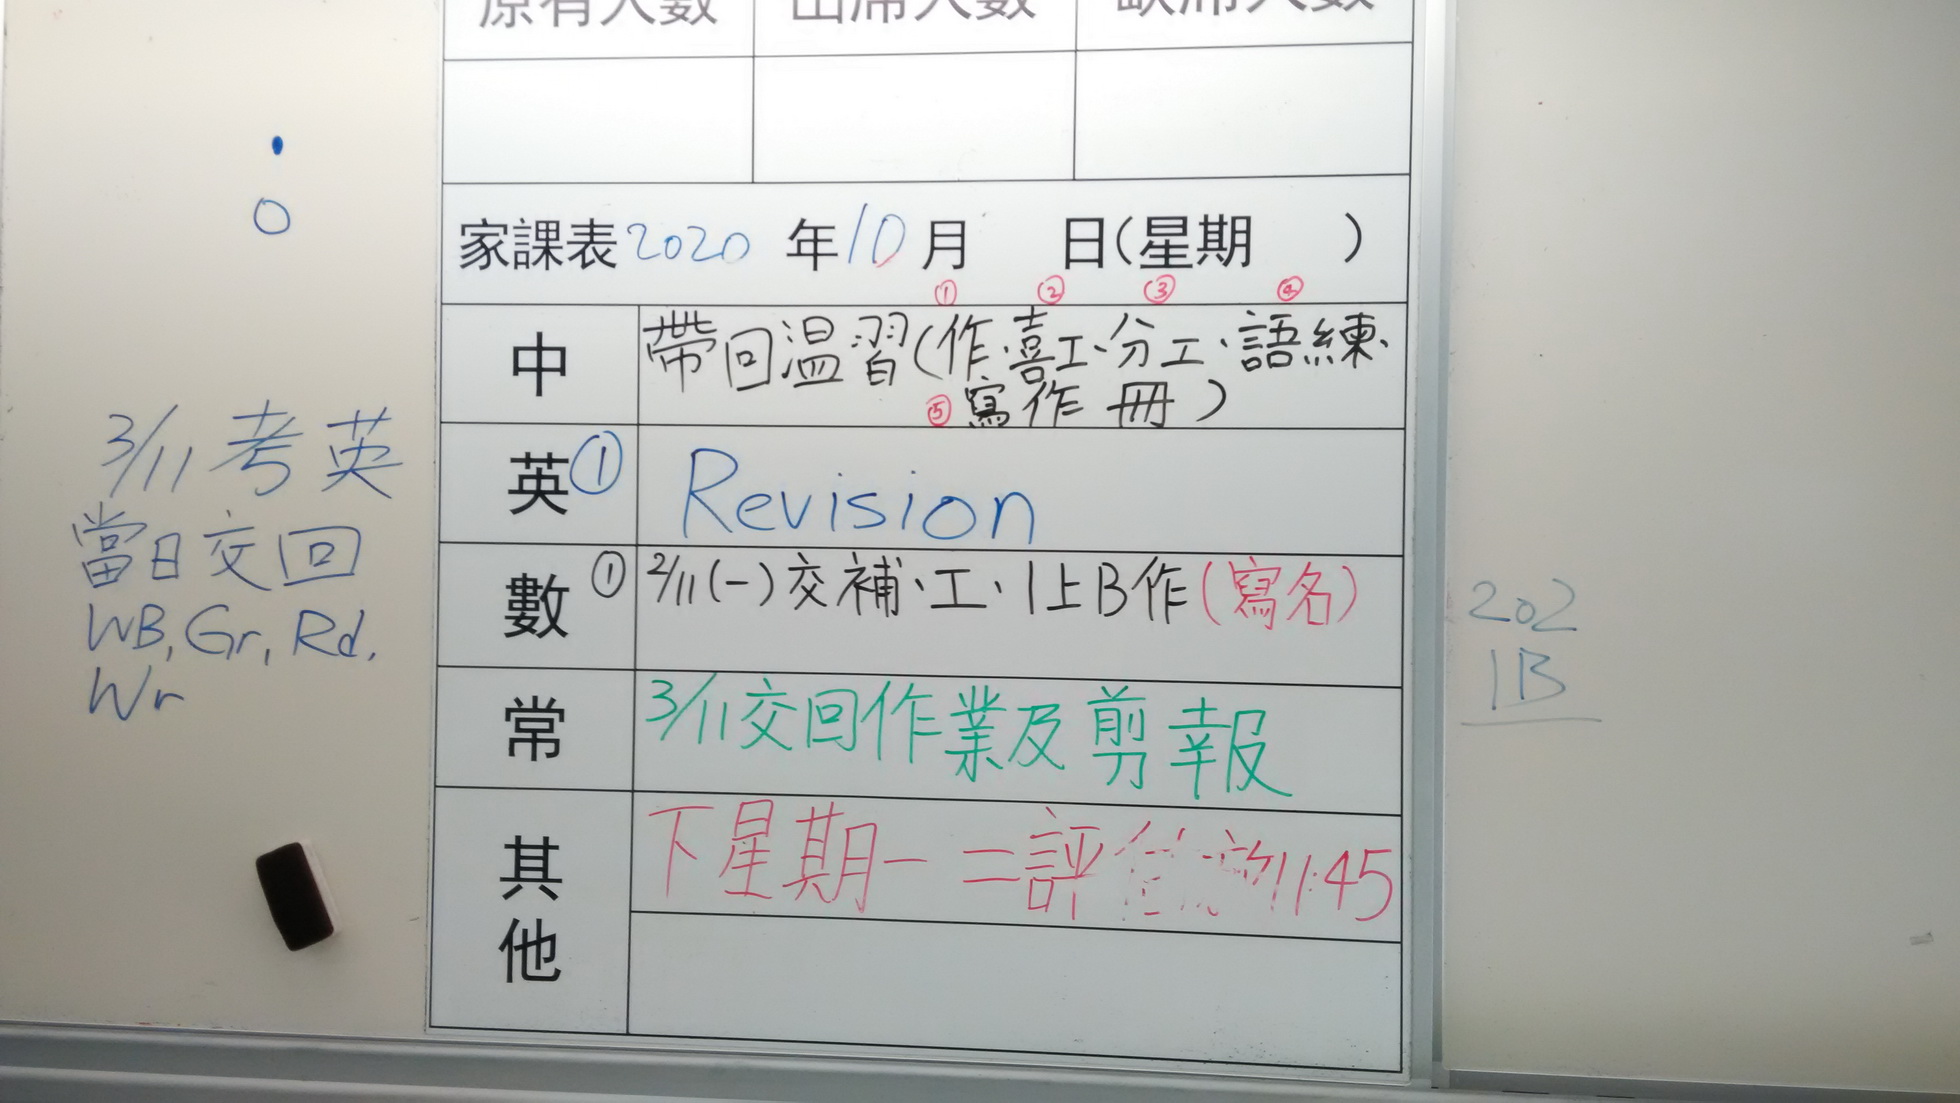 原有人數 出席人數 缺席人數
家課表2020年10月 日(星期 )
① ② ③ ④
中 帶回溫習(作、喜工、分工、語練、
⑤寫作冊)
英① Revision
數① 2/11(一)交補、工、1上B作(寫名)
常 3/11交回作業及剪報
其他 下星期一二評估 11:45
3/11考英
當日交回
WB, Gr, Rd,
Wr
202
1B